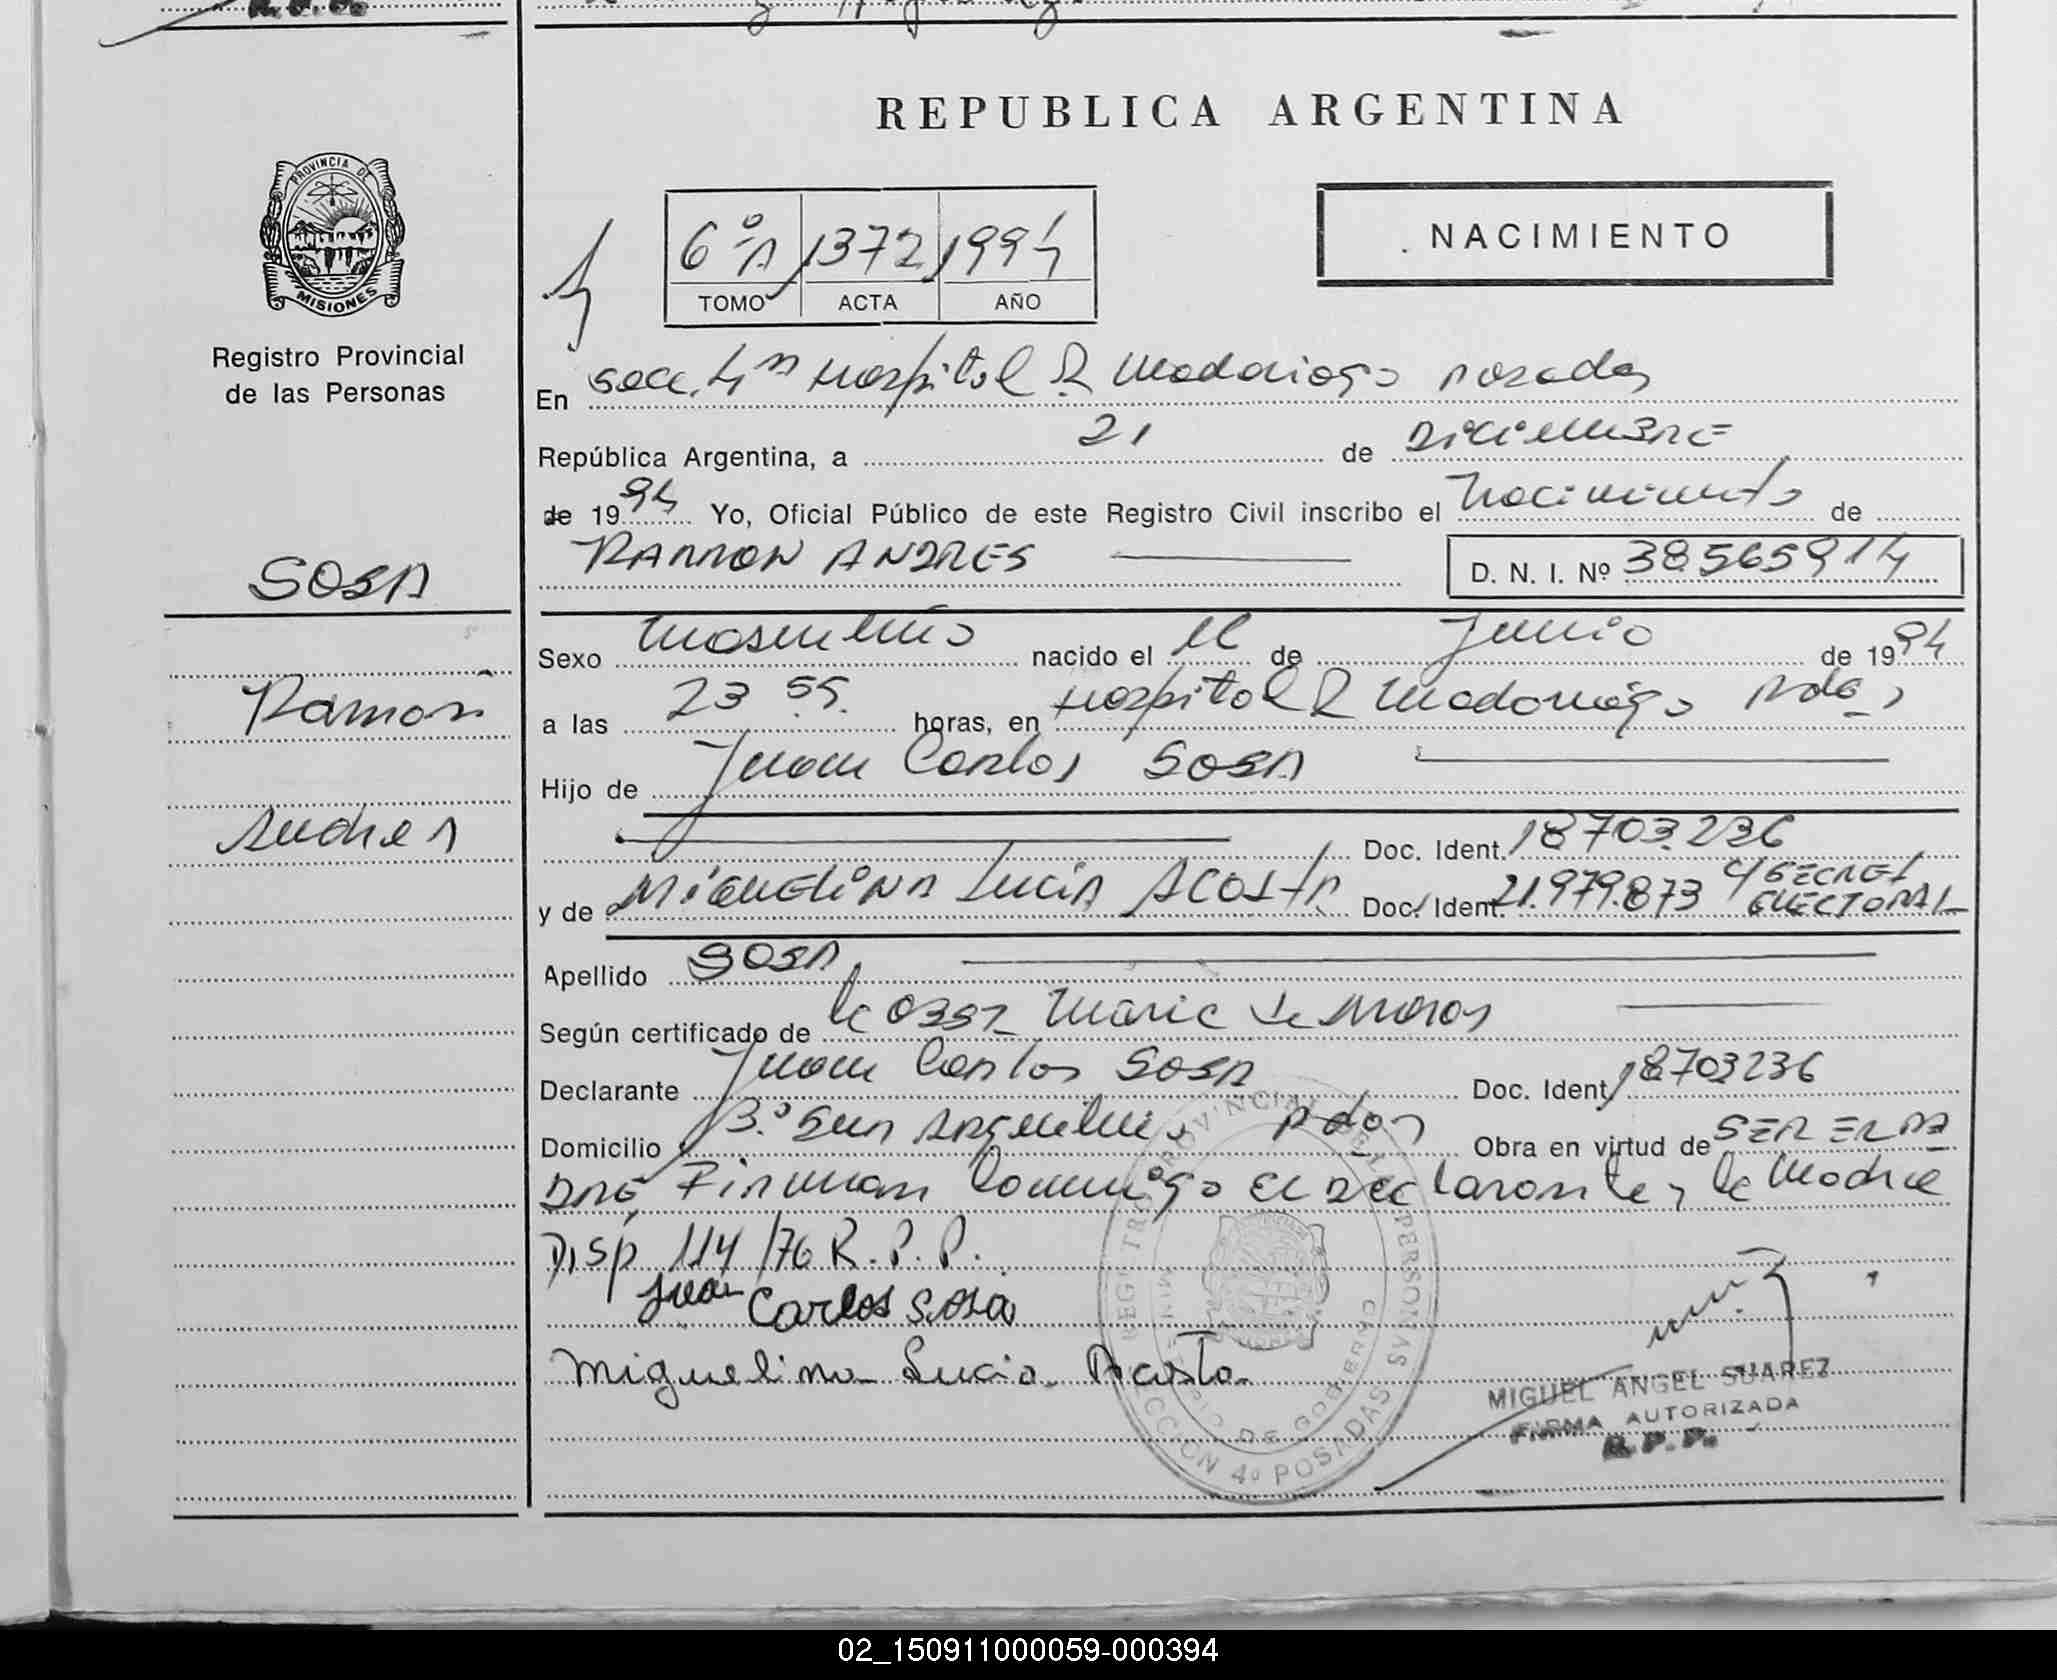 REPUBLICA ARGENTINA
PROVINCIA DE
MISIONES
Registro Provincial
de las Personas
6º A 1372 1994
TOMO ACTA AÑO
NACIMIENTO
En secc. 4ª Hospital R Madariaga Posadas
República Argentina, a 21 de Diciembre
de 1994 Yo, Oficial Público de este Registro Civil inscribo el Nacimiento de
RAMON ANDRES
D. N. I. Nº 38565914
SOSA
Ramon
Andres
Sexo Masculino nacido el 11 de Junio de 1994
a las 23 55. horas, en Hospital R Madariaga Pdas
Hijo de Juan Carlos SOSA
Doc. Ident. 18703.236
y de MIGUELINA LUCIA ACOSTA Doc. Ident. 21.979.873 C/SECRET
ELECTORAL
Apellido SOSA
Según certificado de la Obst Maria de
Declarante Juan Carlos SOSA Doc. Ident. 18703236
Domicilio Bº San Argentino Pdas Obra en virtud de SER EL PA
DRE, Firman Conmigo el Declarante y la Madre
Disp 114/76 R.P.P.
Juan Carlos Sosa
Miguelina Lucia Acosta
REGISTRO PROVINCIAL DE LAS PERSONAS
MINISTERIO DE GOBIERNO
SECCION 4º POSADAS
MIGUEL ANGEL SUAREZ
FIRMA AUTORIZADA
R.P.P.
02_150911000059-000394